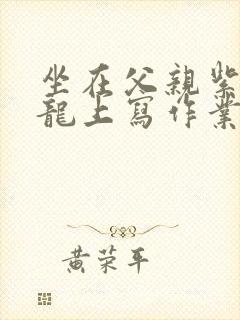 坐在父親紫
龍上寫作業
黄荣平